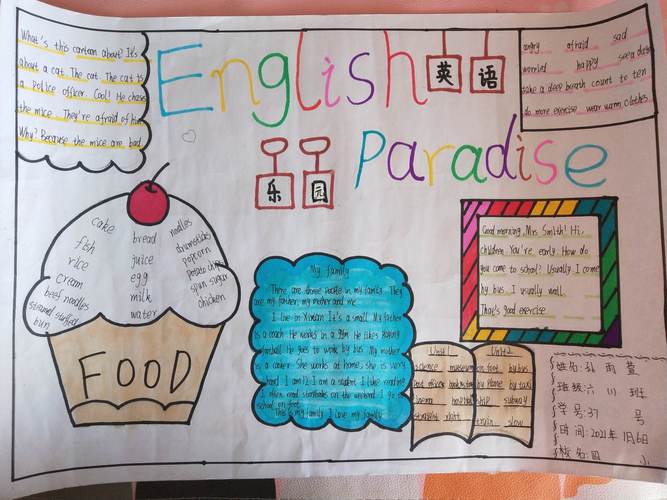 English
英语
乐园
Paradise
What's this cartoon about? It's
about a cat. The cat. The cat is
a police officer. Cool! He chase
the mice. They're afraid of him
Why? Because the mice are bad.
angry afraid sad
worried happy see a doctor
take a deep breath count to ten
do more exercise wear warm clothes
cake bread noodles
fish juice drumsticks
rice egg popcorn
cream milk potato chips
beef noodles water spun sugar
steamed stuffed chicken
bun
FOOD
My family
There are three people in my family. They
are my father, my mother and me.
I live in It's a small My father
is a coach. He works in a gym. He likes playing
football He goes to work by bus. My mother
is a She works at home, she is very
hard. I am 12. I am a student. I like reading
I often read storybooks on the weekend. I go
school on foot.
This is my family I love my family
Good morning, Mrs Smith! Hi,
children. You're early How do
you come to school? Usually I come
by bus. I usually walk.
That's good exercise
Unit1
science museum
post office bookstore
cinema hospital
straight right
Unit2
on foot by bus
by plane by taxi
ship subway
train slow
姓名:孙雨萱
班级:六(1)班
学号:37号
时间:2021年1月6日
校名:四小